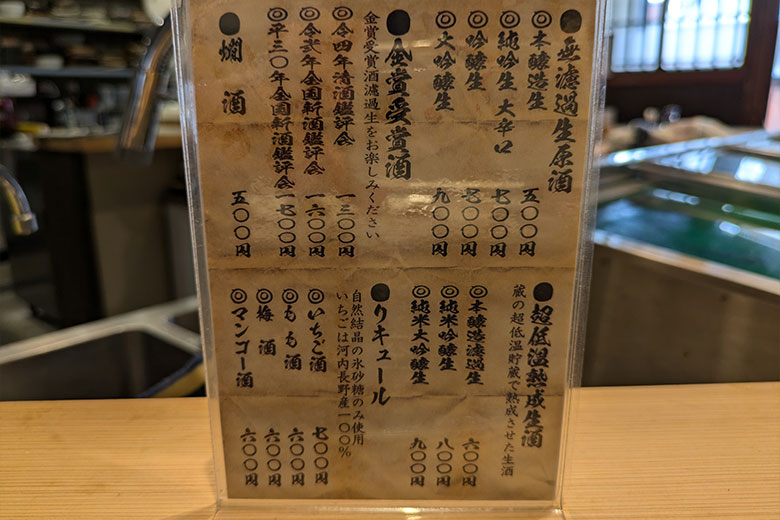 ●無濾過生原酒
◎本醸造生 五〇〇円
◎純吟生 大辛口 七〇〇円
◎吟醸生 七〇〇円
◎大吟醸生 九〇〇円
●金賞受賞酒
金賞受賞酒濾過生をお楽しみください
◎令四年清酒鑑評会 一三〇〇円
◎令弐年全国新酒鑑評会 一六〇〇円
◎平三〇年全国新酒鑑評会 一七〇〇円
●燗酒 五〇〇円
●超低温熟成生酒
蔵の超低温貯蔵で熟成させた生酒
◎本醸造濾過生 六〇〇円
◎純米吟醸生 八〇〇円
◎純米大吟醸生 九〇〇円
●リキュール
自然結晶の氷砂糖のみ使用
いちごは河内長野産一〇〇％
◎いちご酒 七〇〇円
◎もも酒 六〇〇円
◎梅酒 六〇〇円
◎マンゴー酒 六〇〇円